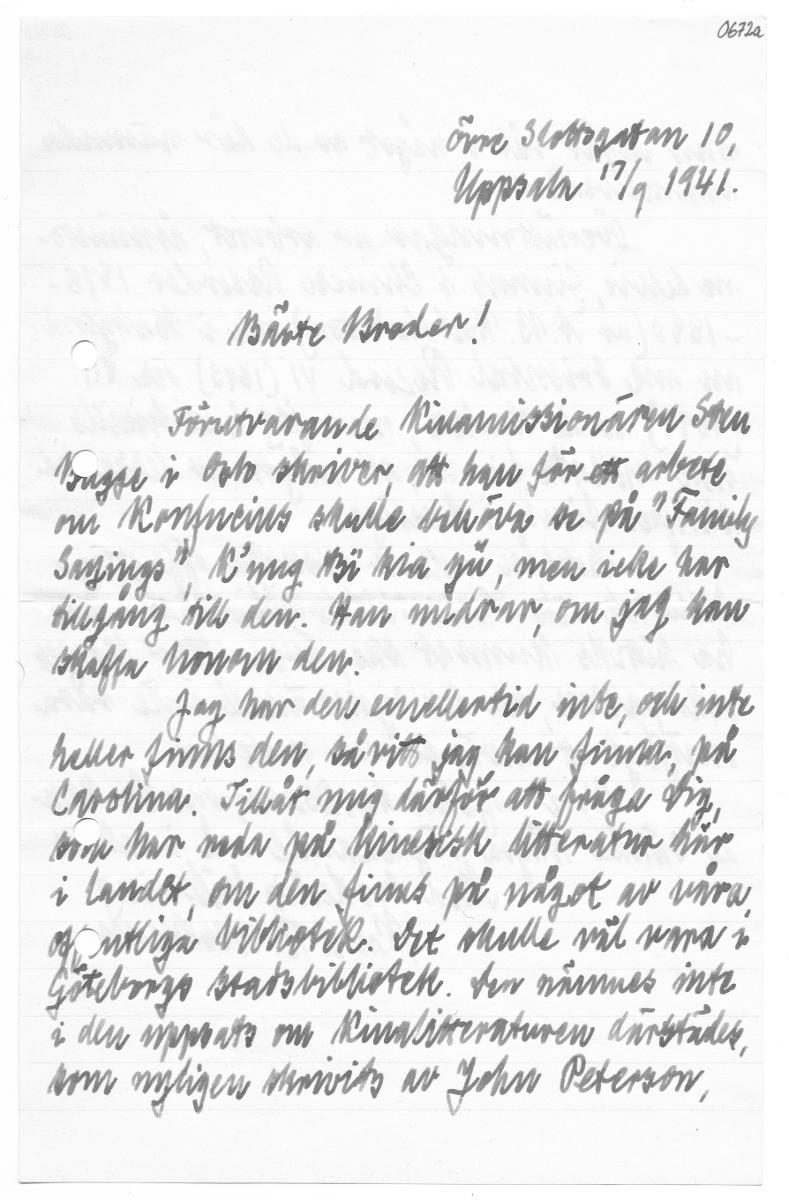 0672a
Övre Slottsgatan 10,
Uppsala 17/9 1941.
Bäste Broder!
Förutvarande Kinamissionären Sten
Bugge i Oslo skriver, att han för ett arbete
om Konfucius skulle behöva se på "Family
Sayings", K'ung tzï kia yü, men icke har
tillgång till den. Han undrar, om jag kan
skaffa honom den.
Jag har den emellertid inte, och inte
heller finns den, såvitt jag kan finna, på
Carolina. Tillåt mig därför att fråga Dig,
som har reda på kinesisk litteratur här
i landet, om den finns på något av våra
offentliga bibliotek. Det skulle väl vara i
Göteborgs stadsbibliotek. Den nämnes inte
i den uppsats om Kinalitteraturen därstädes,
som nyligen skrivits av John Peterson,